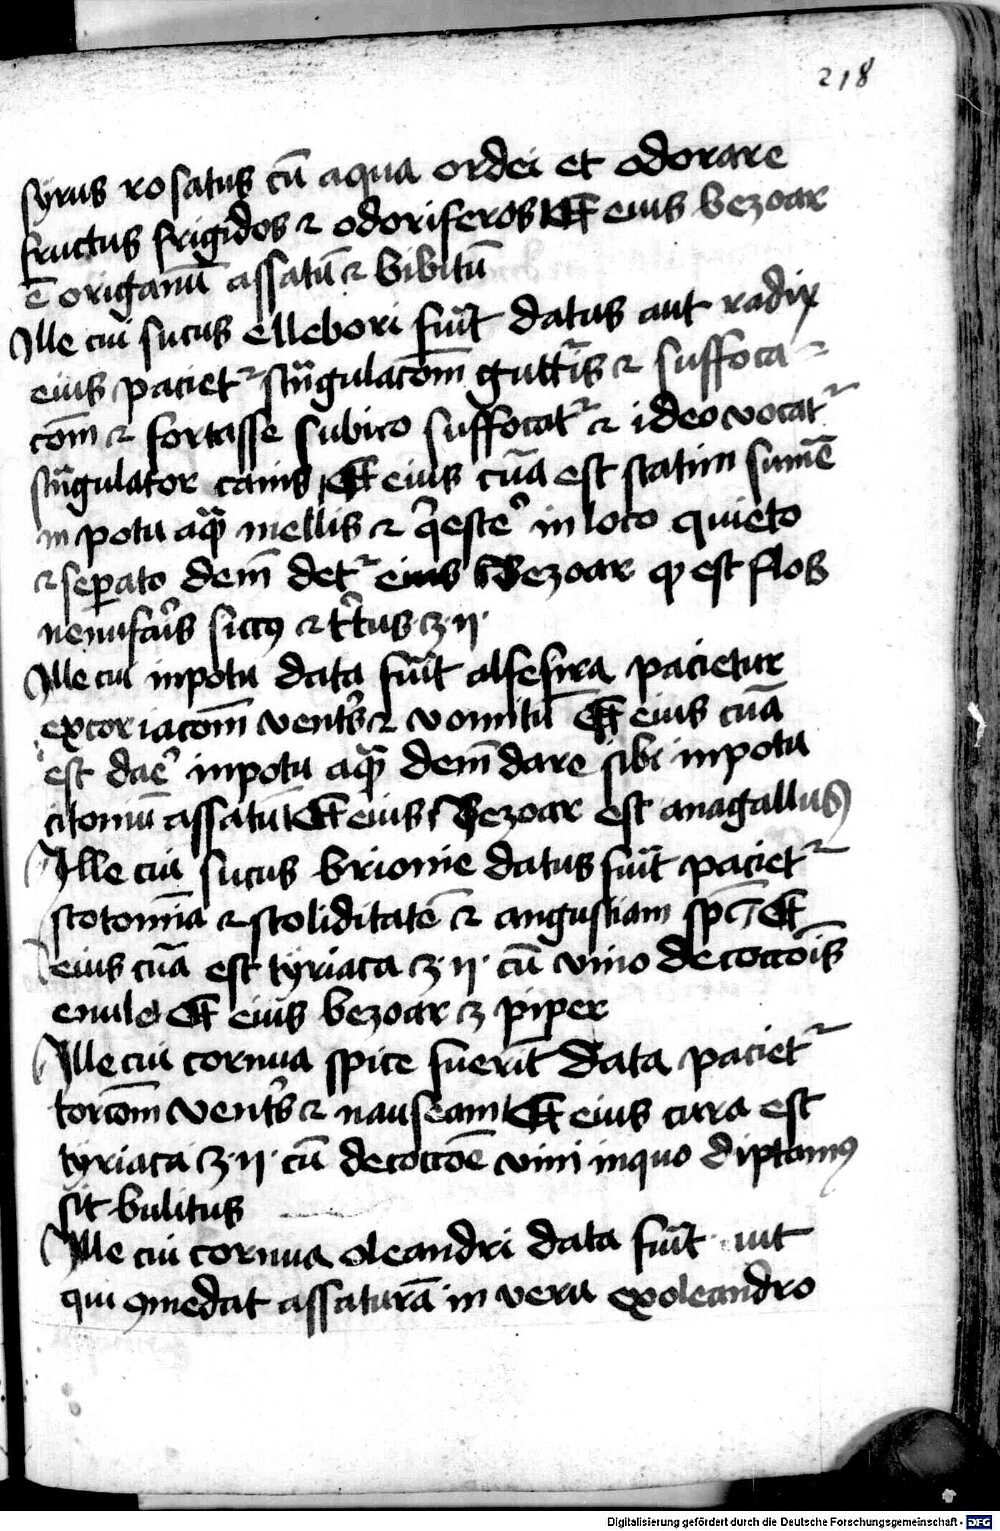 218
syrus rosatus cū aqua ordei et odorare
fructus frigidos ⁊ odoriferos Et eius bezoar
ē origanū assatū ⁊ bibitū
Ille cui sucus ellebori fu̅it datus aut radix
eius paciet᷑ st̅ngulacōm gutt̅is ⁊ suffoca-
cōm ⁊ fortasse subito suffocat᷑ ⁊ ideo vocat᷑
st̅ngulator canis Et eius cūa est statim sumē
in potu aq̄ mellis ⁊ in loco quieto
⁊ sep̱ato dem̄ det᷑ eius Bezoar qͥ est flos
nenufa̅is siccꝰ ⁊ t̅tus ʒ·ij·
Ille cui inpotu data fu̅it alfesira pacietur
excoriacōm vent̅s ⁊ vomitū Et eius cūa
est da̅e inpotu aq̄ dem̄ dare sibi inpotu
citoniū assatū Et eius Bezoar est anagallus
Ille cui sucus brionie datus fu̅it paciet᷑
scotomīa ⁊ stoliditatē ⁊ angustiam Et
eius cūa est tyriaca ʒ·ij· cū vino decoccōis
enule Et eius bezoar ʒ piper
Ille cui cornua spice fuerīt data paciet᷑
torcōm vent̅s ⁊ nauseam Et eius cura est
tyriaca ʒ·ij· cū decoccōe vini inquo diptamꝰ
sit bulitus
Ille cui cornua oleandri data fu̅it
qui ꝯmedat assaturā in veru ex oleandro
Digitalisierung gefördert durch die Deutsche Forschungsgemeinschaft - DFG